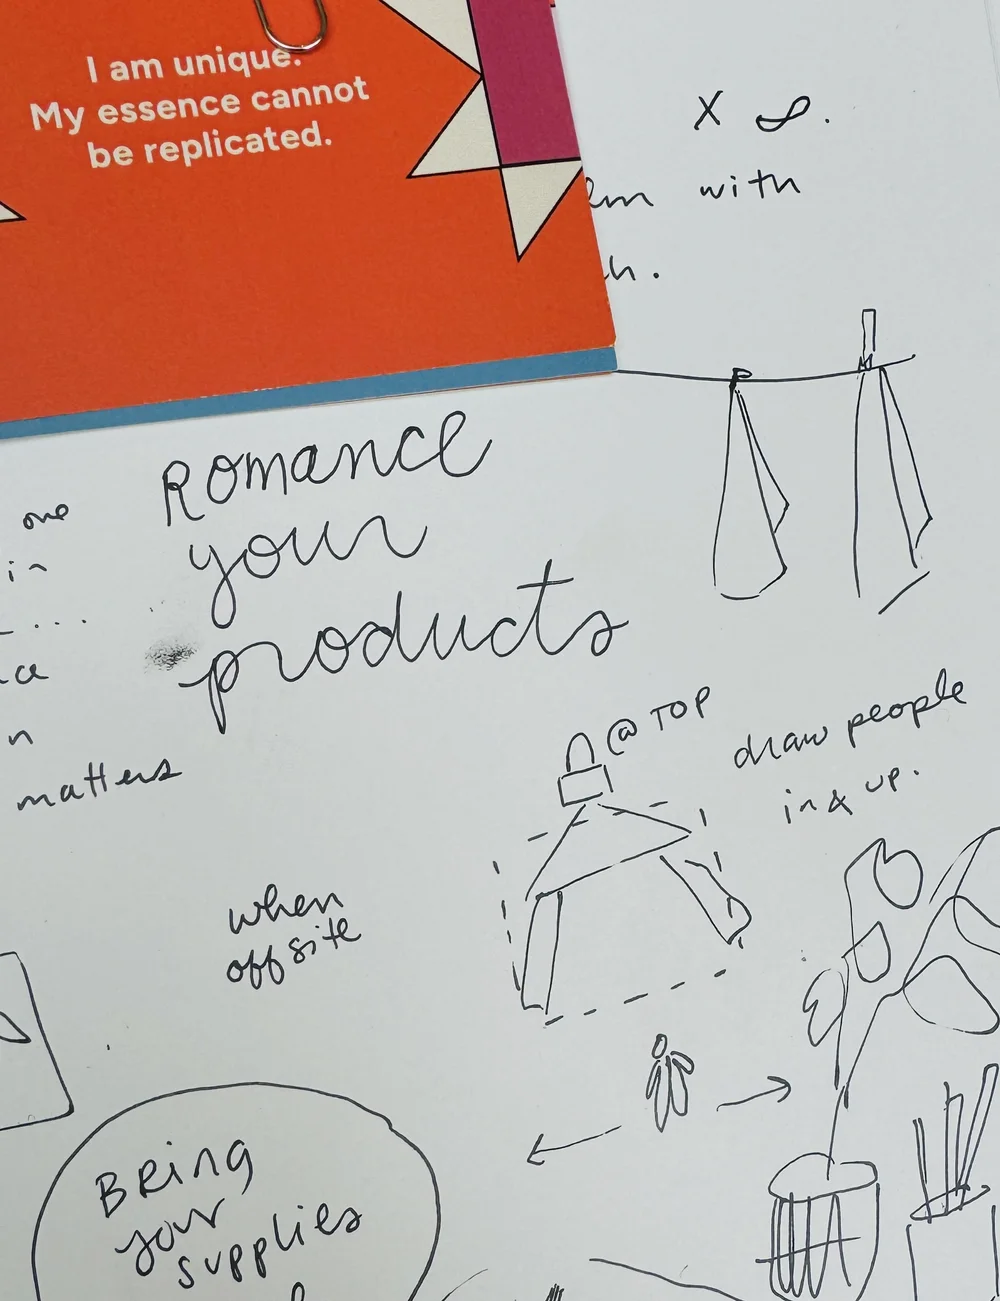 I am unique.
My essence cannot
be replicated.
X
with
one
in
....
n
matters
Romance
your
products
@ TOP
draw people
in & up.
when
offsite
Bring
your
supplies